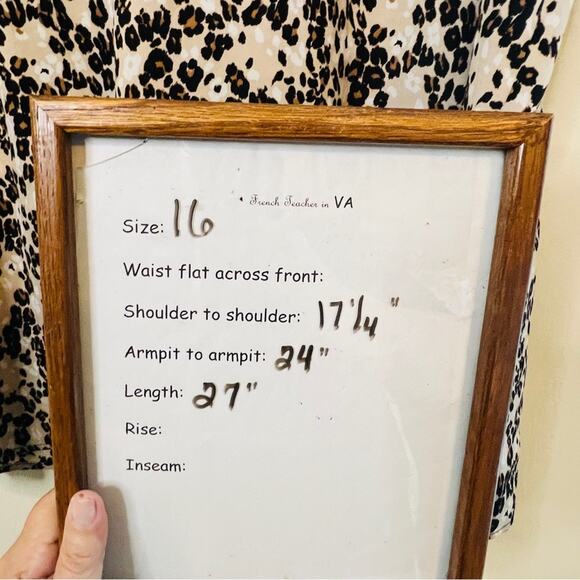 French Teacher in VA
Size: 16
Waist flat across front:
Shoulder to shoulder: 17 1/4"
Armpit to armpit: 24"
Length: 27"
Rise:
Inseam: